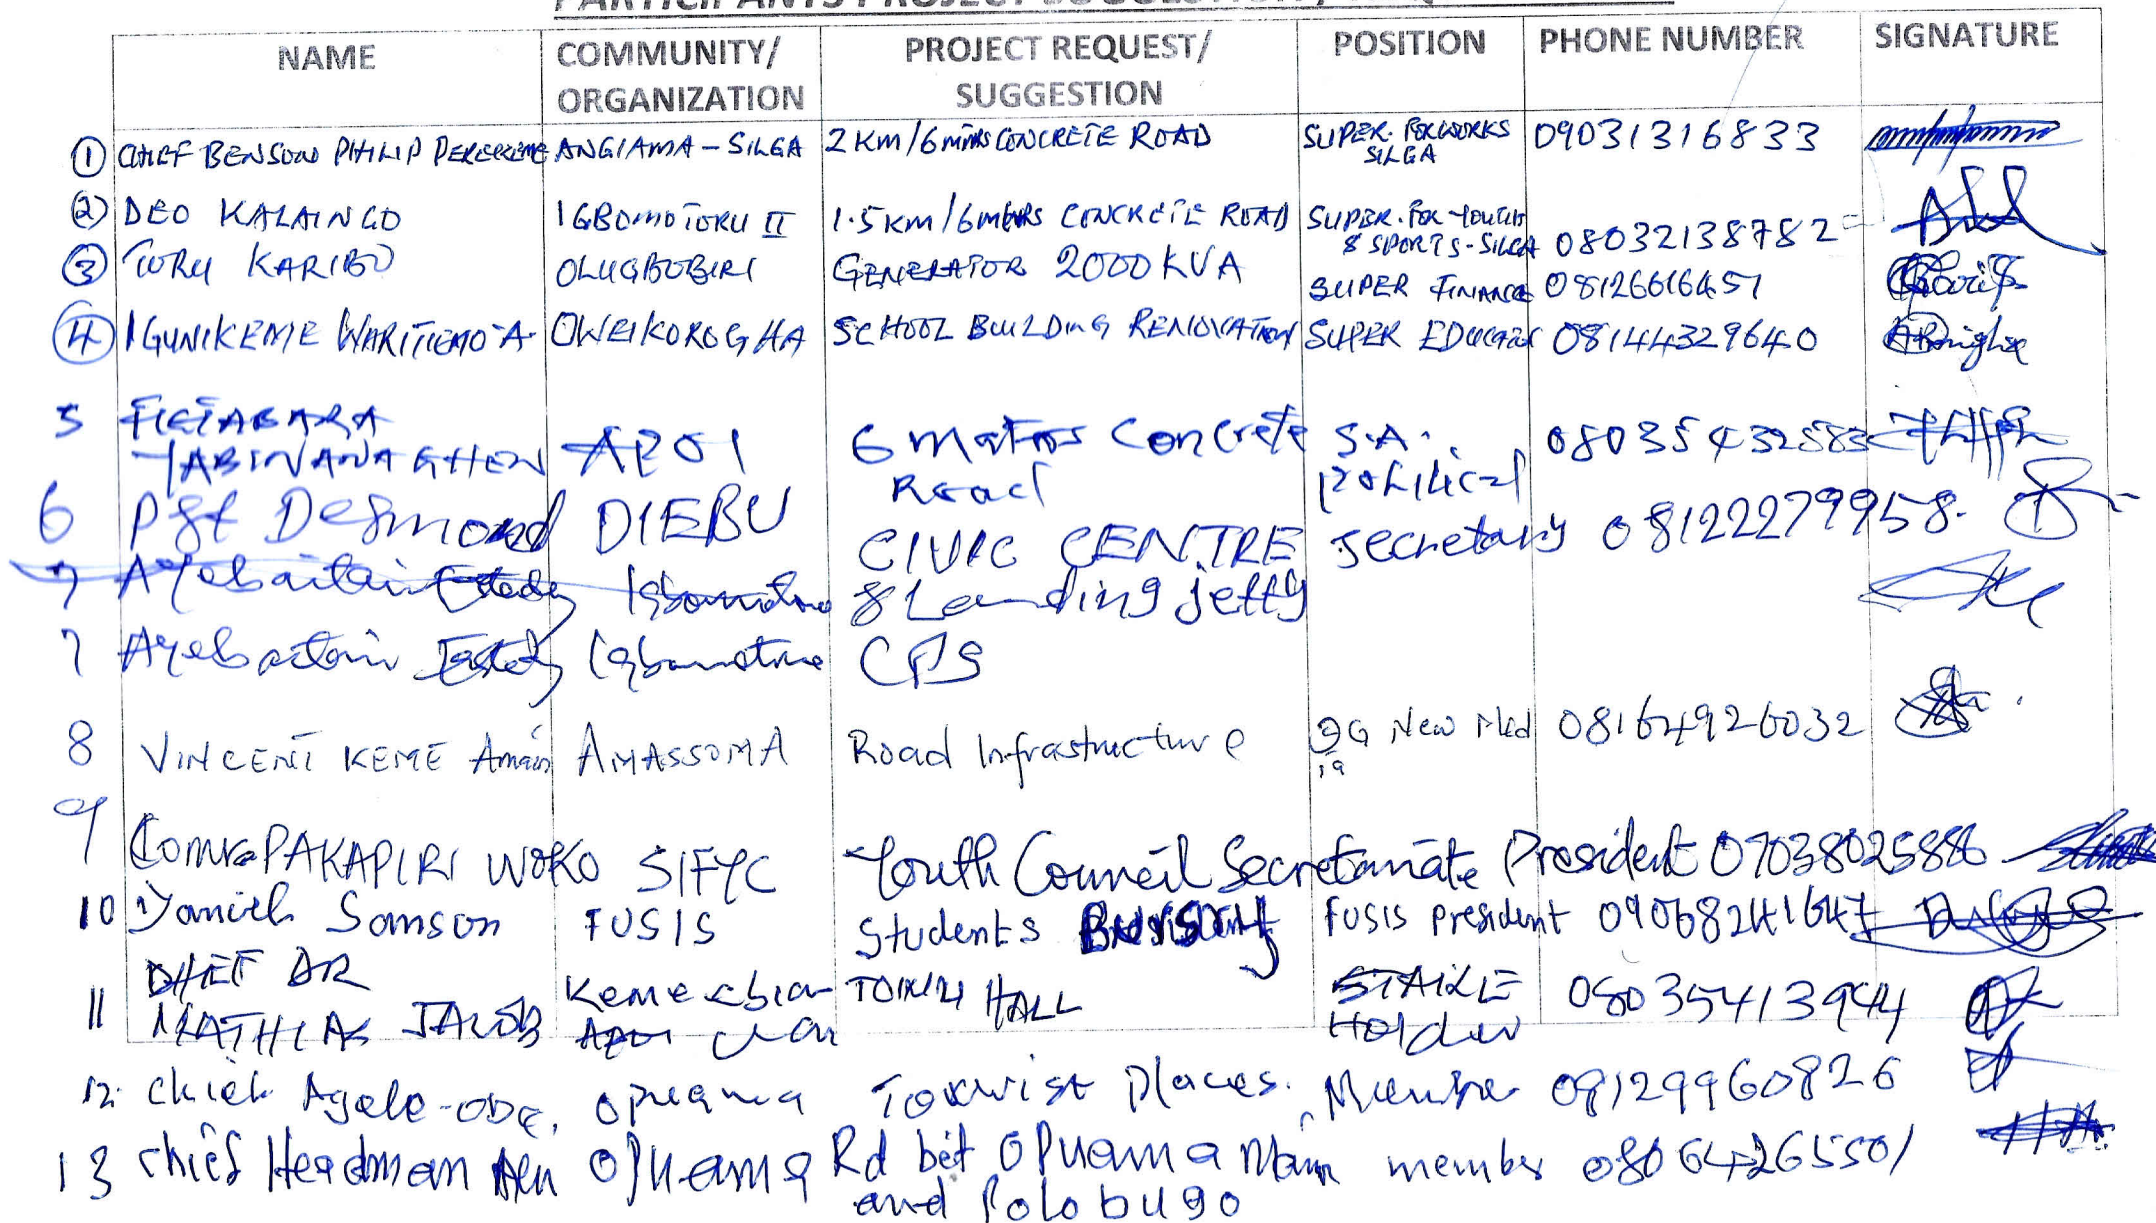 PARTICIPANTS PROJECT
NAME COMMUNITY/ ORGANIZATION PROJECT REQUEST/ SUGGESTION POSITION PHONE NUMBER SIGNATURE
1 CHIEF BENSON PHILIP PEREKEME ANGIAMA - SILGA 2 KM/6 mtrs CONCRETE ROAD SUPER. FOR WORKS SILGA 09031316833
2 DEO KALAINGO IGBOMOTORU II 1.5 KM/6 mtrs CONCRETE ROAD SUPER. FOR YOUTH & SPORTS - SILGA 08032138782
3 TORU KARIBO OLUGBOBIRI GENERATOR 2000 KVA SUPER FINANCE 08126616451
4 IGUNIKEME WARITIEMO A. OWEIKOROGHA SCHOOL BUILDING RENOVATION SUPER EDUCATION 08144329640
5 FIETABARA YABINANAGHEN APOI 6 Maters Concrete Road S.A. political 08035432583
6 Pst Desmond DIEBU CIVIC CENTRE & Landing jetty secretary 08122279958.
7 Ayebaitain
7 Ayebaitain CPS
8 VINCENT KEME AMASSOMA Road Infrastructure New 08164926032
9 Comr PAKAPIRI WOKO SIFYC Youth Council Secretariate President 07038025886
10 Daniel Samson FUSIS Students Bursary FUSIS President 09068241647
11 CHIEF DR MATHIAS JACOB Keme-ebia Apoi clan TOWN HALL STAKE Holder 08035413944
12. Chief Opuama Tourist places. Member 09129960826
13 Chief Headman Opuama Rd bet Opuama Main and Polobugo member 08064265501